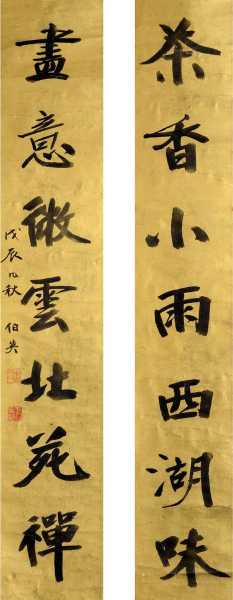 茶香小雨西湖味
畫意微雲北苑禪
戊辰九秋 伯英